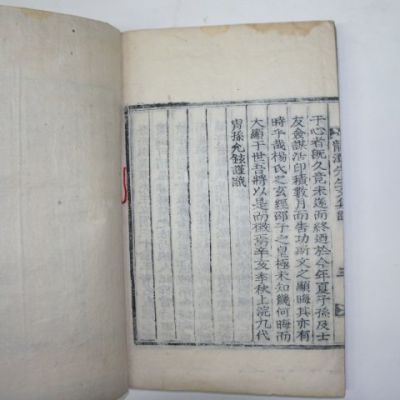 先生文集
三
于心者旣久竟未遂而終迺於今年夏子孫及士
友僉謀活印積數月而告功斯文之顯晦其亦有
時乎哉楊氏之玄經邵子之皇極未知幾何晦而
大顯于世吾將以是而徵焉辛亥季秋上浣九代
胄孫允鉉謹識